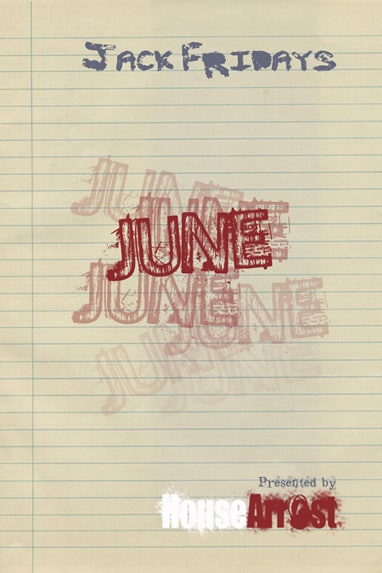 Jack Fridays
JUNE
JUNE
JUNE
JUNE
JUNE
JUNE
Presented by
HouseArrest